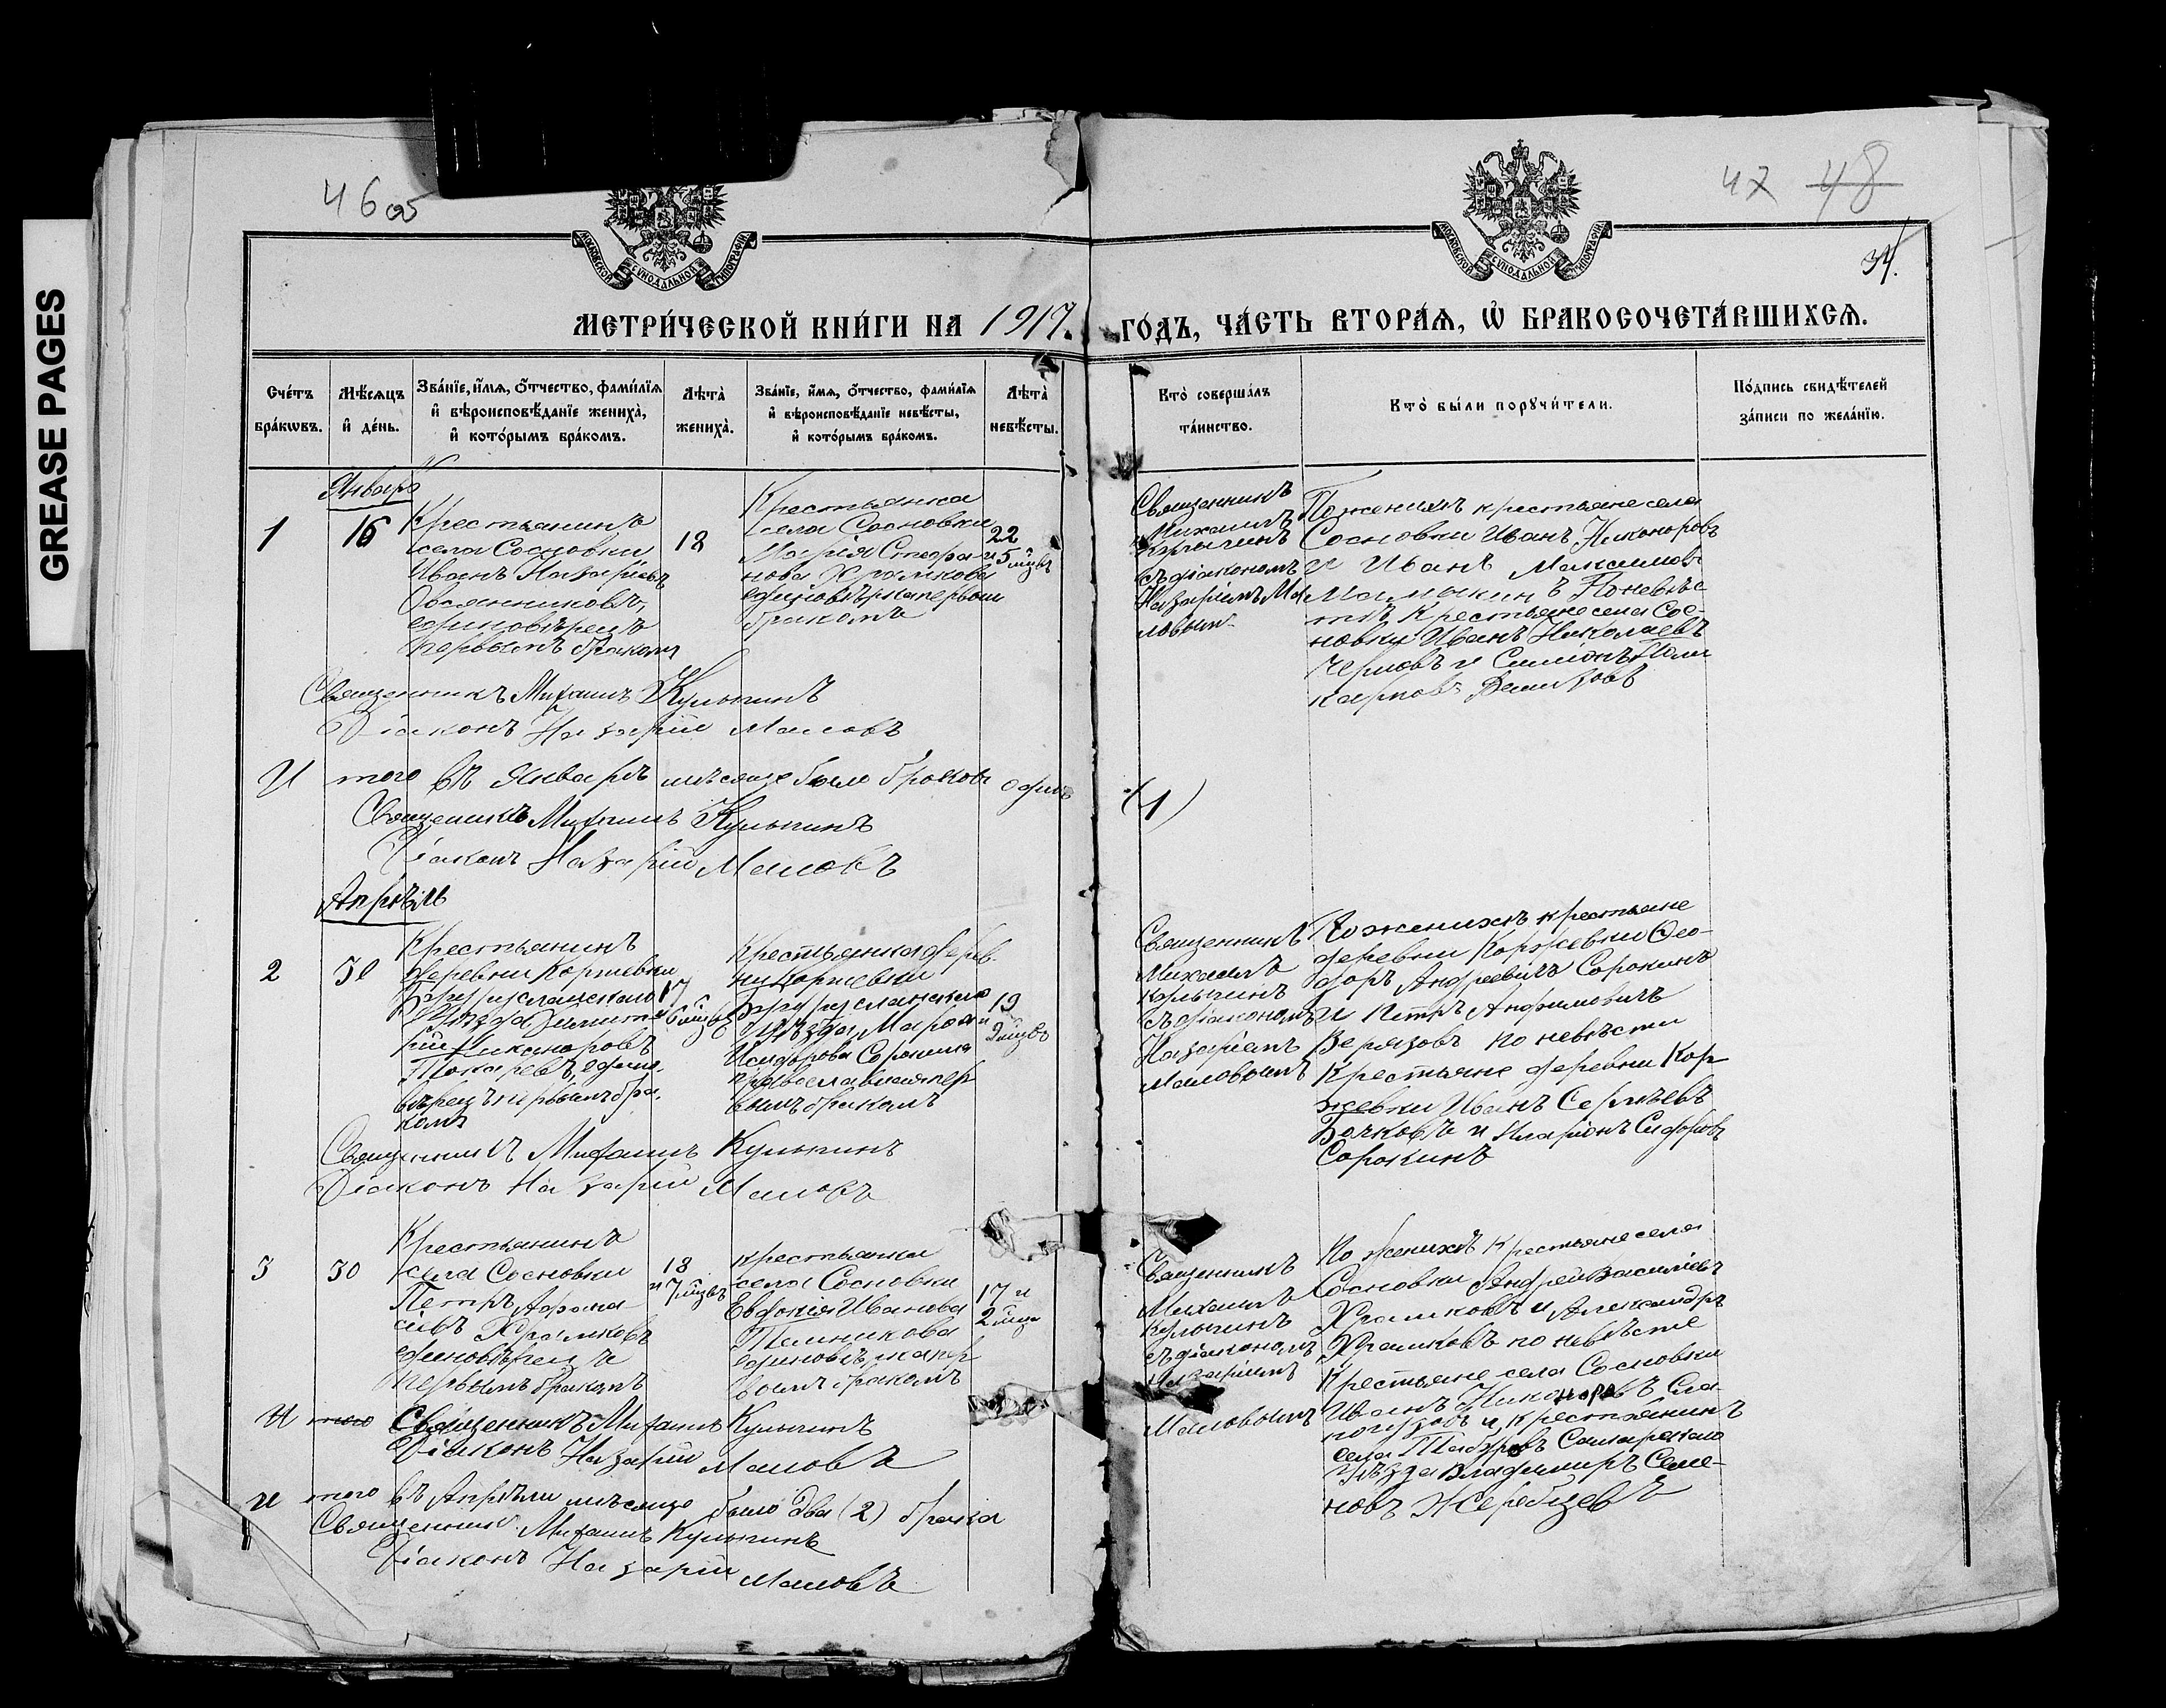 GREASE PAGES
46 об
47 48
34.
МОСКОВСКОЙ СѴНОДАЛЬНОЙ ТИПОГРАФІИ
МОСКОВСКОЙ СѴНОДАЛЬНОЙ ТИПОГРАФІИ
МЕТРИ́ЧЕСКОЙ КНИ́ГИ НА 1917. ГО́ДЪ, ЧА́СТЬ ВТОРА́Ѧ, Ѡ҆ БРАКОСОЧЕТА́ВШИХСѦ.
Сче́тъ бра́кѡвъ.
Мѣ́сѧцъ и҆ де́нь.
Зва́нїе, и҆́мѧ, о҆́тчество, фами́лїѧ и҆ вѣроисповѣ́данїе жениха̀, и҆ кото́рымъ бра́комъ.
Лѣ́та̀ жениха̀.
Зва́нїе, и҆́мѧ, о҆́тчество, фами́лїѧ и҆ вѣроисповѣ́данїе невѣ́сты, и҆ кото́рымъ бра́комъ.
Лѣ́та̀ невѣ́сты.
Кто̀ соверша́лъ та́инство.
Кто̀ бы́ли порꙋчи́тели.
По́дпись свидѣ́телей за́писи по жела́нїю.
Январь
1
16
Крестьянинъ
села Сосновки
Иванъ Назаріевъ
Овсянниковъ,
единовѣрецъ
первымъ бракомъ
18
Крестьянка
села Сосновки
Марія Стефа-
нова Храмкова
единовѣрка первым
бракомъ
22
и 5 мцвъ
Священникъ
Михаилъ
Кулыгинъ
съ діакономъ
Назаріемъ Ма
ловым
По женихѣ крестьяне села
Сосновки Иванъ Никоноровъ
и Иванъ Максимов
По невѣс
тѣ Крестьяне села Сос-
новки Иванъ Николаевъ
и Симіонъ Поли
карповъ
Священникъ Михаилъ Кулыгинъ
Діаконъ Назарій Маловъ
И того въ Январѣ мѣсяце было браковъ одинъ (1)
Священникъ Михаилъ Кулыгинъ
Діаконъ Назарій Маловъ
Апрѣль
2
30
Крестьянинъ
деревни Коржевки
Бугурусланскаго
Уѣзда Димит
рій Никаноровъ
Токаревъ, едино-
вѣрецъ первымъ бра-
комъ
17
и 6 мцвъ
Крестьянка дерев-
ни Коржевки
Бугурусланскаго
уѣзда, Марѳа
Исидорова Сорокина
православная пер
вымъ бракомъ
19
и 2 мцвъ
Священникъ
Михаилъ
Кулыгинъ
съ діакономъ
Назаріемъ
Маловымъ
По женихѣ крестьяне
деревни Коржевки Ѳео-
доръ Андреевичъ Сорокинъ
и Петръ Анфимовичъ
по невѣсти
Крестьяне деревни Кор-
жевки Иванъ Сергѣевъ
Бочковъ и Иларіонъ Сидоровъ
Сорокинъ
Священникъ Михаилъ Кулыгинъ
Діаконъ Назарій Маловъ
3
30
Крестьянинъ
села Сосновки
Петръ Афана
сіевъ Храмковъ
единовѣрецъ
первымъ бракомъ
18
и 7 мцвъ
крестьянка
села Сосновки
Евдокія Иванова
единовѣрка пер
вымъ бракомъ
17 и
2 мца
Священникъ
Михаилъ
Кулыгинъ
съ діакономъ
Назаріемъ
Маловымъ
По женихѣ крестьяне села
Сосновки Андрей Василіевъ
Храмковъ и Александръ
Храмковъ по невѣсте
Крестьяне села Сосновки
Иванъ Никаноровъ Сла-
погузовъ и крестьянинъ
села Самарскаго
Уѣзда Владимиръ Семе-
новъ Жеребцевъ
И того Священникъ Михаилъ Кулыгинъ
Діаконъ Назарій Маловъ
И того въ Апрѣли мѣсяце было два (2) брака
Священникъ Михаилъ Кулыгинъ
Діаконъ Назарій Маловъ